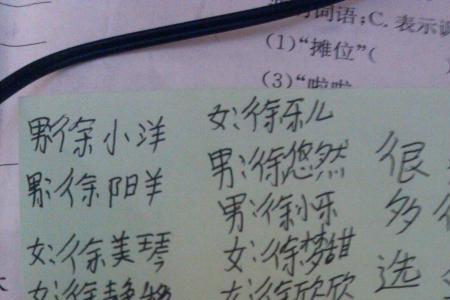 对词语;C.表示
(1)“摊位”(
(3)“啦啦
男:徐小洋
男:徐阳羊
女:徐美琴
女:徐静
女:徐乐儿
男:徐悠然
男:徐小乐
女:徐梦甜
女:徐欣欣
很
多
选